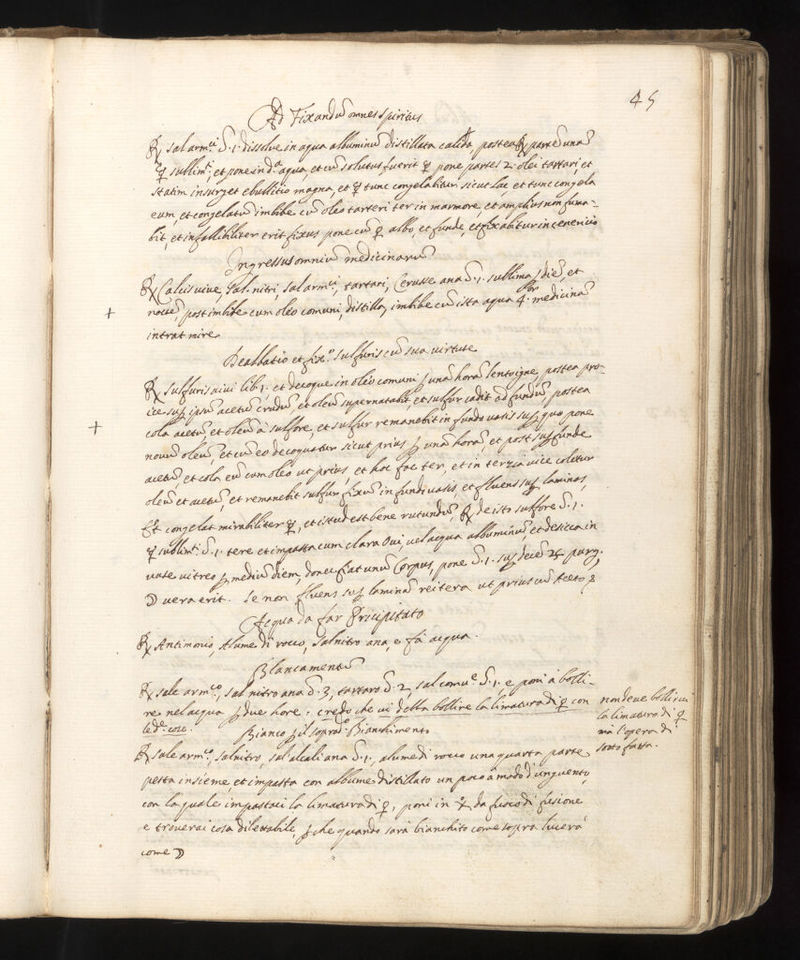 45
Ad Fixandũ omnes spiritus
℞ sal armci ℥.1. dissolve in aqua albuminũ distillata calida, postea ℞ partẽ unã
☿ sullimti, et pone in da aqua, et cũ solutus fuerit ☿ pone partes 2. olei tartari, et
statim insurget ebullitio magna, et ☿ tunc congelabitur sicut lac et tunc congela
eum, et congelatũ imbibe cũ oleo tarteri ter in marmore, et amplius non fuma-
bit, et infallibiliter erit fixus pone cũ ♀ albo, et funde, et fixabitur in cenericio
Ingressus omniũ medicinarũ
℞ Calcis vive, sal nitri, sal armci, tartari, Cerusse ana ℥.1. sullima p diẽ et
noctẽ, post imbibe cum oleo comuni, distilla, imbibe cũ ista aqua 4.or medicinã
intrat mire
Dealbatio et fixo sulfuris cũ sua virtute
℞ sulfuris vivi lib 1. et decoque in oleo comuni p unã horã lento igne, postea pro-
ice sup ipsũ acetũ crudũ et oleũ supernatabit, et sulfur cadit ad fundũ, postea
cola acetũ et oleũ à sulfore, et sulfur remanebit in fundo vasis sup quo pone
novũ oleũ, et cũ eo decoquatur sicut prius p unã horã et post sup funde
acetũ, et cola eũ cum oleo ut prius, et hoc fac ter, et in terza vice coletur
oleũ et acetũ, et remanebit sulfur fixũ in fundi vasis, et fluens sup laminas,
Et congelat mirabiliter ☿, et istud est bene rutundũ, ℞ de isto sulfore ℥.1.
☿ sullimti ℥.1. tere et impasta cum clara ovi, vel acqua albuminũ, et desicca in
vase vitreo p mediũ diem, donec fiat unũ Corpus, pone ℥.1. sup decẽ ♃ purg.
☽ vera erit. Se non fluens sup laminã reitera ut prius cũ Aceto &
Acqua da far Pricipitato
℞ Antimonio, Alume di rocco, salnitro ana, e fa acqua.
Blancamentũ
℞ sale armco, sal nitro ana ℥.3, tartaro ℥.2, sal comue ℥.1. e poni à bolli-
re nel acqua p due hore: credo che vi debba bollire la limatura di ♀ con
le de. cose.
non deve bollirvi
la limatura di ♀
ma l'opera di
sotto fatta.
Bianco p il soprado Bianchimento
℞ sale armco, salnitro, sal alcali ana ℥.1., alume di rocco una quarta parte
pesta insieme, et impasta con albume distillato un poco à modo d'unguento,
con la quale impastaci la limatura di ♀, poni in da fuoco di fusione
e troverai cosa dilettabile, p che quando sarà bianchito come sopra lucerà
come ☽